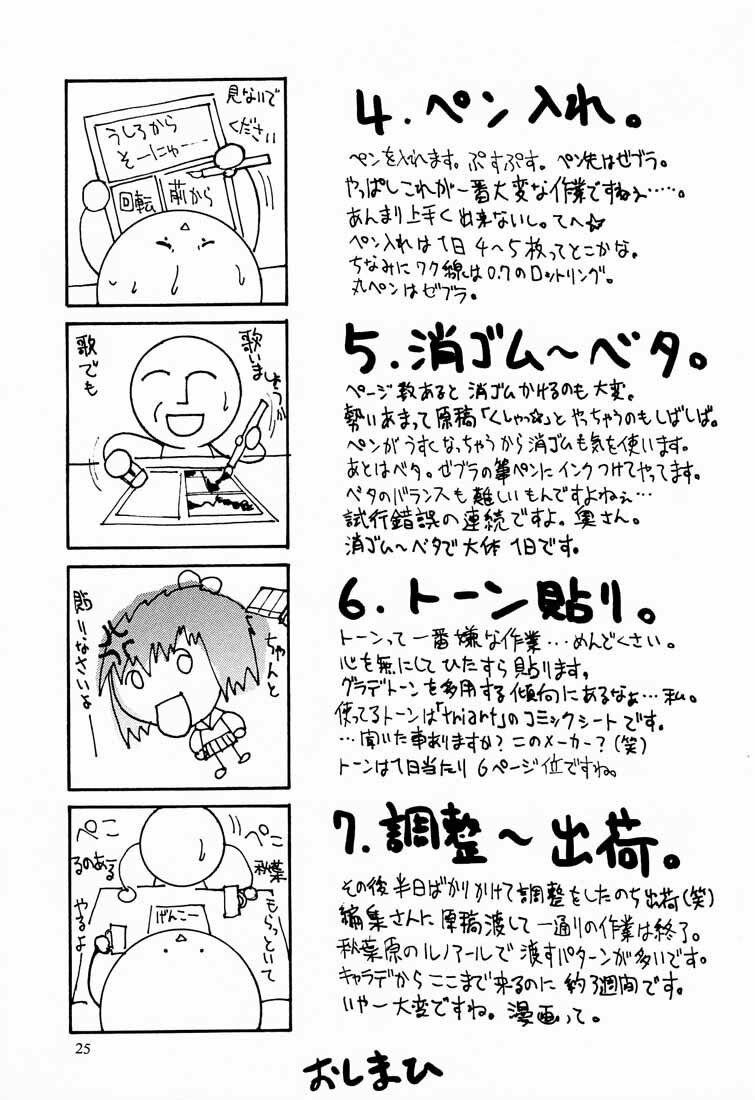 見ないで
ください
うしろから
そーにゅー……
回転
前から
4.ペン入れ。
ペンを入れます。ぷすぷす。ペン先はゼブラ。
やっぱしこれが一番大変な作業ですねぇ……。
あんまり上手く出来ないし。てへ☆
ペン入れは1日4〜5枚ってとこかな。
ちなみにワク線は0.7のロットリング。
丸ペンはゼブラ。
歌いましょうか
歌でも
5.消ゴム〜ベタ。
ページ数あると消ゴムかけるのも大変。
勢いあまって原稿「くしゃっ☆」とやっちゃうのもしばしば。
ペンがうすくなっちゃうから消ゴムも気を使います。
あとはベタ。ゼブラの筆ペンにインクつけてやってます。
ベタのバランスも難しいもんですよねぇ…
試行錯誤の連続ですよ。奥さん。
消ゴム〜ベタで大体1日です。
ちゃんと
貼りなさいよーー
6.トーン貼り。
トーンって一番嫌な作業…めんどくさい。
心を無にしてひたすら貼ります。
グラデトーンを多用する傾向にあるなぁ…私。
使ってるトーンは「triart」のコミックシートです。
…聞いた事ありますか?このメーカー?(笑)
トーンは1日当たり6ページ位ですね。
ぺこ
ぺこ
秋葉
るのあーる
げんこー
もらっといて
やるよ
7.調整〜出荷。
その後半日ばかりかけて調整をしたのち出荷(笑)
編集さんに原稿渡して一通りの作業は終了。
秋葉原のルノアールで渡すパターンが多いです。
キャラデからここまで来るのに約3週間です。
いやー大変ですね。漫画って。
おしまひ
25